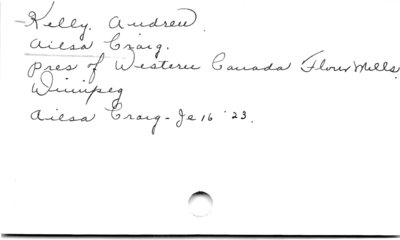 Kelly, Andrew.
Ailsa Craig.
pres of Western Canada Flour Mills.
Winnipeg
Ailsa Craig - Je 16 '23.